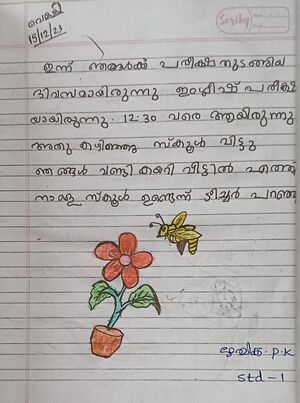 വെള്ളി
15/12/23
Scribly
ഇന്ന് ഞങ്ങൾക്ക് പരീക്ഷ തുടങ്ങിയ
ദിവസമായിരുന്നു ഇംഗ്ലീഷ് പരീക്ഷ
യായിരുന്നു. 12:30 വരെ ആയിരുന്നു
അതു കഴിഞ്ഞു സ്കൂൾ വിട്ടു
ഞങ്ങൾ വണ്ടി കയറി വീട്ടിൽ എത്തി
നാളെ സ്കൂൾ ഉണ്ടെന്ന് ടീച്ചർ പറഞ്ഞു
P.K
Std - 1